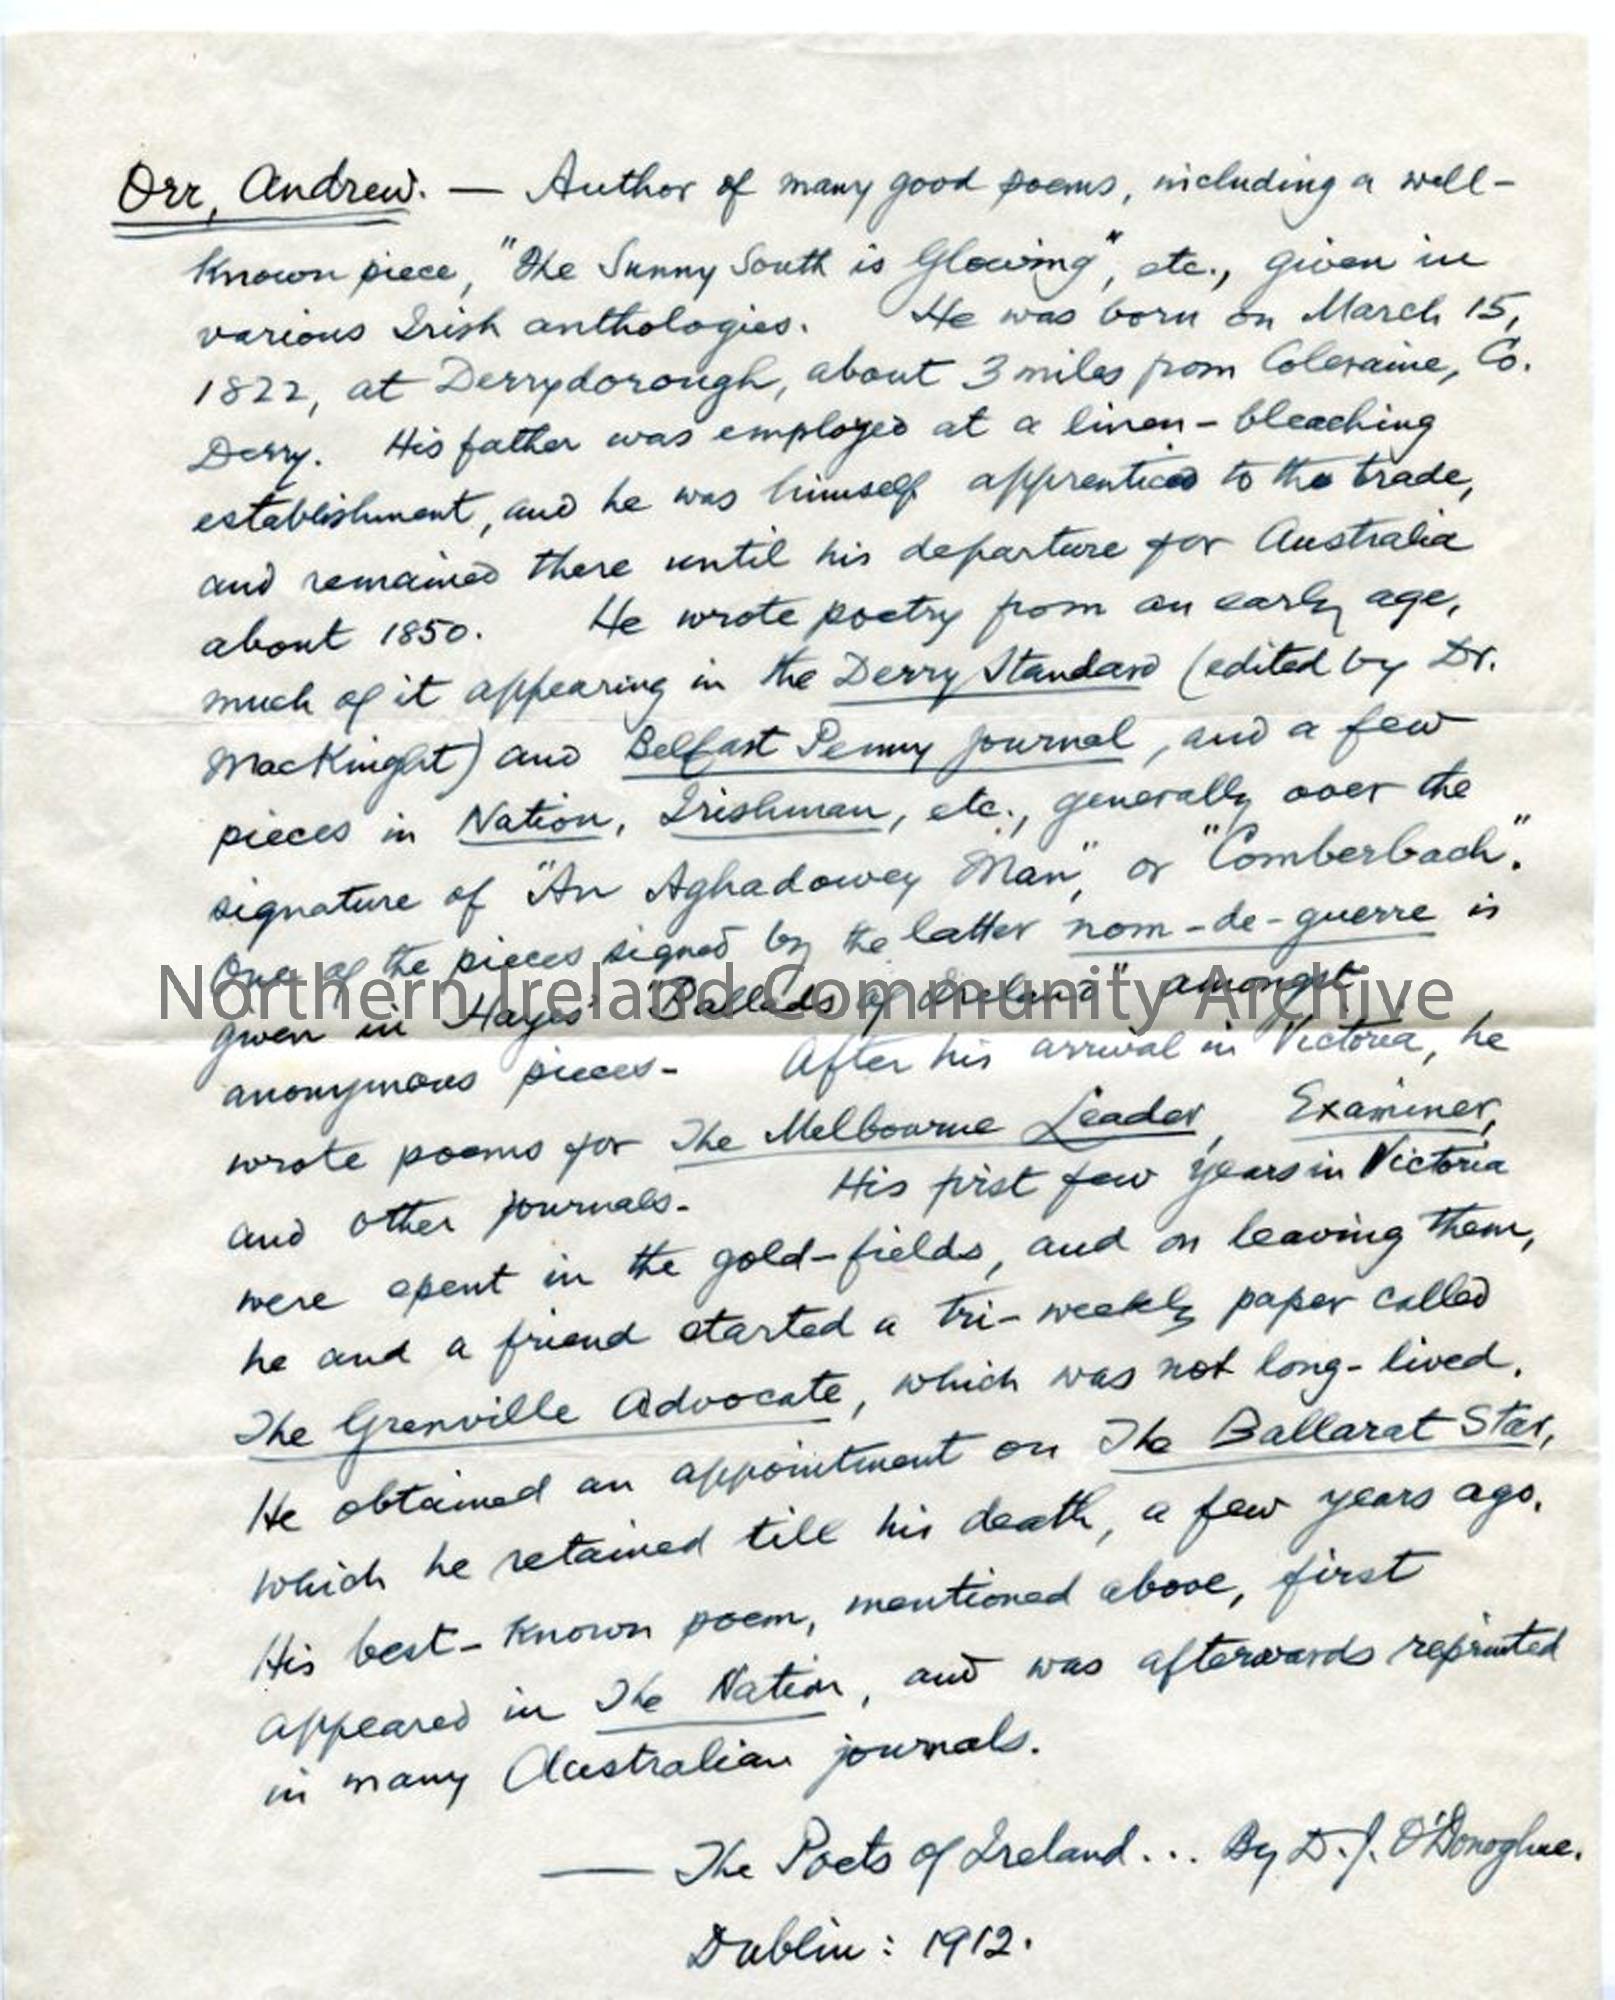 Orr, Andrew. — Author of many good poems, including a well-
known piece, "The Sunny South is Glowing", etc., given in
various Irish anthologies. He was born on March 15,
1822, at Derrydorough, about 3 miles from Coleraine, Co.
Derry. His father was employed at a linen-bleaching
establishment, and he was himself apprenticed to the trade,
and remained there until his departure for Australia
about 1850. He wrote poetry from an early age,
much of it appearing in the Derry Standard (edited by Dr.
MacKnight) and Belfast Penny Journal, and a few
pieces in Nation, Irishman, etc., generally over the
signature of "An Aghadowey Man", or "Comberbach".
One of the pieces signed by the latter nom-de-guerre is
given in Hayes' "Ballads of Ireland" amongst
Northern Ireland Community Archive
anonymous pieces- After his arrival in Victoria, he
wrote poems for The Melbourne Leader, Examiner,
and other journals- His first few years in Victoria
were spent in the gold-fields, and on leaving them,
he and a friend started a tri-weekly paper called
The Grenville Advocate, which was not long-lived.
He obtained an appointment on The Ballarat Star,
which he retained till his death, a few years ago.
His best-known poem, mentioned above, first
appeared in The Nation, and was afterwards reprinted
in many Australian journals.
— The Poets of Ireland... By D.J. O'Donoghue.
Dublin: 1912.